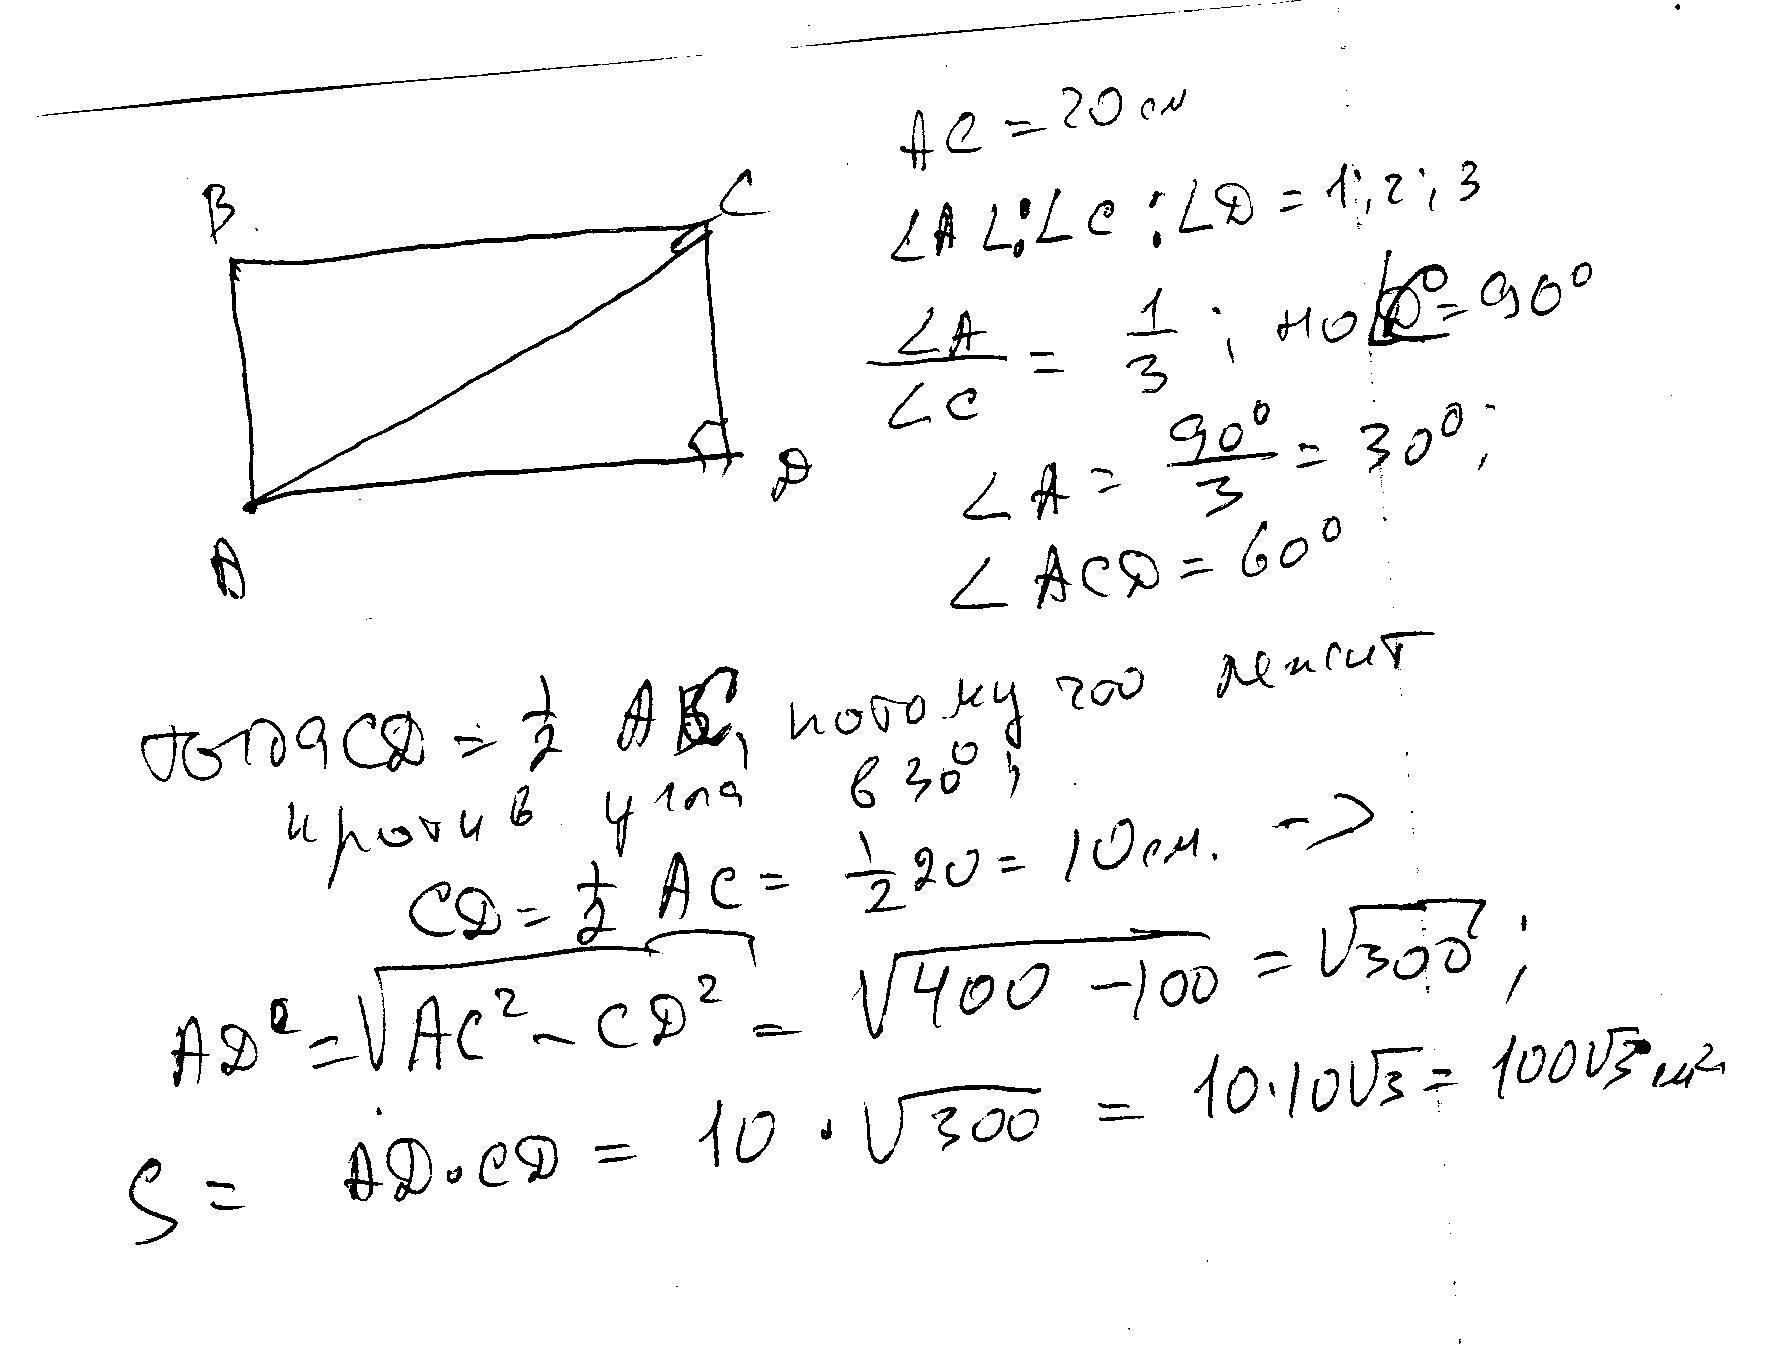 B
C
A
D
AC = 20 см
∠A ∠:∠C :∠D = 1:2:3
∠A/∠C = 1/3 ; но = 90°
∠A = 90°/3 = 30°;
∠ACD = 60°
тогда CD = 1/2 AC, потому что лежит
против угла в 30°;
CD = 1/2 AC = 1/2 20 = 10 см. ->
AD = √AC² - CD² = √400 - 100 = √300 ;
S = AD · CD = 10 · √300 = 10·10√3 = 100√3 см²